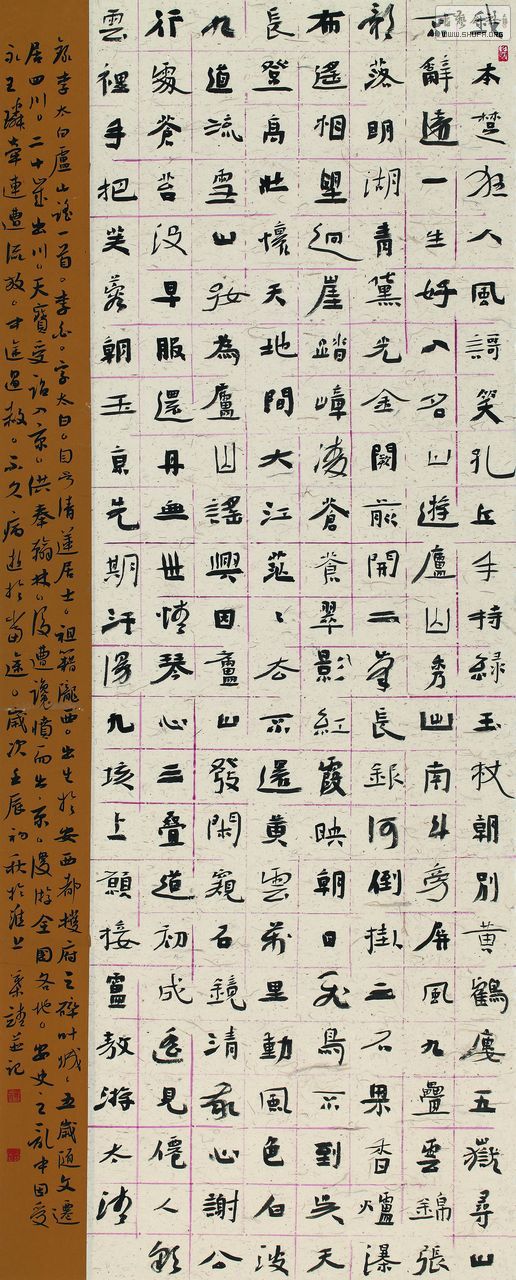 我本楚狂人風謌笑孔丘手持綠玉杖朝別黃鶴廔五嶽尋山
不辭遠一生好入名山遊廬山秀出南斗旁屏風九疊雲錦張
影落明湖青黛光金闕前開二峯長銀河倒掛三石梁香爐瀑
布遙相望迴崖踏嶂凌蒼蒼翠影紅霞映朝日飛鳥不到吳天
長登高壯懷天地間大江茫、去不還黃雲萬里動風色白波
九道流雪山好為廬山謠興因廬山發閑窺石鏡清我心謝公
行處蒼苔沒早服還丹無世情琴心三疊道初成遙見僊人綵
雲裡手把芙蓉朝玉京先期汗漫九垓上願接盧敖游太清
錄李太白廬山謠一首。李白。字太白。自号清蓮居士。祖籍隴西。出生於安西都護府之碎叶城。五歲隨父遷
居四川。二十歲出川。天寶受詔入京。供奉翰林。後遭讒憤而出京。漫游全國各地。安史之亂中因受
永王璘牽連遭流放。中途遇赦。不久病逝於當塗。歲次壬辰初秋於淮上 並記